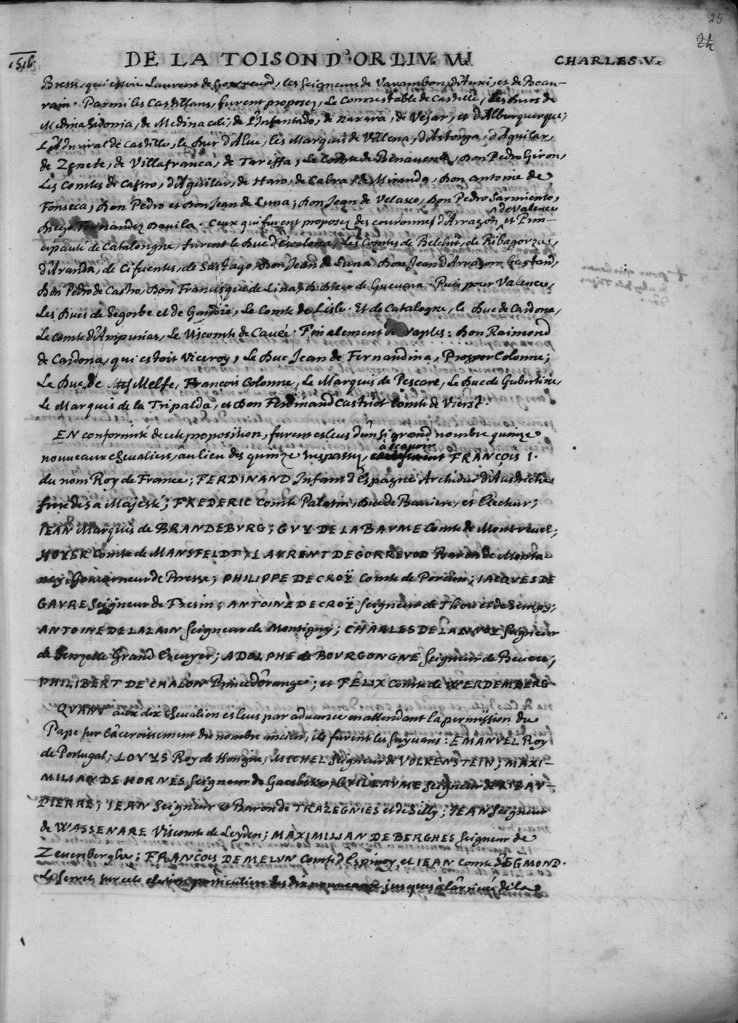 25
24
1516. DE LA TOISON D'OR LIV. VI. CHARLES V.
Bresse, qui estoit Laurent de Gorrevod, les Seigneurs de Vavambon, d'Autri, et de Beau-
rain. Parmi les Castillans, furent proposez, le Connestable de Castille, les Ducs de
Medina Sidonia, de Medina celi, de L'Infantado, de Naxara, de Vejar, et d'Alburquerque;
L'Admiral de Castille, le Duc d'Alve, les Marquis de Villena, d'Astorga, d'Aguilar,
de Zenete, de Villafranca, de Tariffa, le Comte de Benavente, Don Pedro Giron,
Les Comtes de Castro, d'Aguilar, de Haro, de Cabra, de Miranda, Don Antoine de
Fonseca, Don Pedro et Don Jean de Luna, Don Jean de Velasco, Don Pedro Sarmiento,
Diego Fernandez Davila. Ceux qui furent proposez des couronnes d'Arragon, de Valence et Prin-
cipauté de Catalongne, furent le Duc d'Escalona, Les Comtes de Belchit, de Ribagorza,
d'Aranda, de Cifuentes, de Sastago, Don Jean de Luna, Don Jean d'Arragon
Don Pedro de Castro, Don Francisque de Luna, Diego de Guevara. Puis pour Valence,
Les Ducs de Segorbe et de Gandie, Le Comte de L'isle. Et de Catalogne, le Duc de Cardona,
Le Comte d'Ampurias, Le Viscomte de Finalement de Naples: Don Raimond
de Cardona, qui estoit Viceroy, Le Duc Jean de Fernandina, Prosper Colonne;
Le Duc de Melfe, François Colonne, Le Marquis de Pescare, Le Duc de
Le Marquis de la Tripalda, et Don Ferdinand Castriot Comte de
EN conformité de cete proposition, furent esleus d'un si grand nombre quinze
nouveaux chevaliers, au lieu des quinze trespassez, à sçavoir FRANÇOIS I.
du nom Roy de France; FERDINAND Infant d'Espagne Archiduc d'Austriche
frere de sa Majesté; FREDERIC Comte Palatin, Duc de Baviere, et Electeur;
JEAN Marquis de BRANDEBURG; GUY DE LA BAUME Comte de Montrevel;
HOYER Comte de MANSFELDT; LAURENT DE GORREVOD Baron de Monta-
ney, Gouverneur de Bresse; PHILIPPE DE CROY Comte de Porcien; JACQUES DE
GAVRE Seigneur de Fresin; ANTOINE DE CROY Seigneur de Thou et de Sempy;
ANTOINE DE LALAIN Seigneur de Montigny; CHARLES DE LANNOY Seigneur
de Senzelle Grand Escuyer; ADOLPHE de BOURGONGNE Seigneur de Bevere;
PHILIBERT DE CHALON Prince d'Orange; et FELIX Comte de WERDEMBERG
QUANT aux dix chevaliers esleus par advance en attendant la permission du
Pape sur l'accroissement du nombre ancien, ils furent les suyvans: EMANUEL Roy
de Portugal; LOUYS Roy de Hongrie; MICHEL Seigneur de VOLKENSTEIN; MAXI-
MILIAN DE HORNES Seigneur de Gaesbeke; GUILEAUME Seigneur de RIBAU-
PIERRE; JEAN Seigneur et Baron de TRAZEGNIES et de Silly; JEAN Seigneur
de WASSENARE Viscomte de Leyden; MAXIMILIAN DE BERGHES Seigneur de
Zevemberghe; FRANÇOIS DE MELUN Comte d'Espinoy, et JEAN Comte d'EGMOND.
Le secret sur cete election particuliere des dix jusques à l'arrivée de la